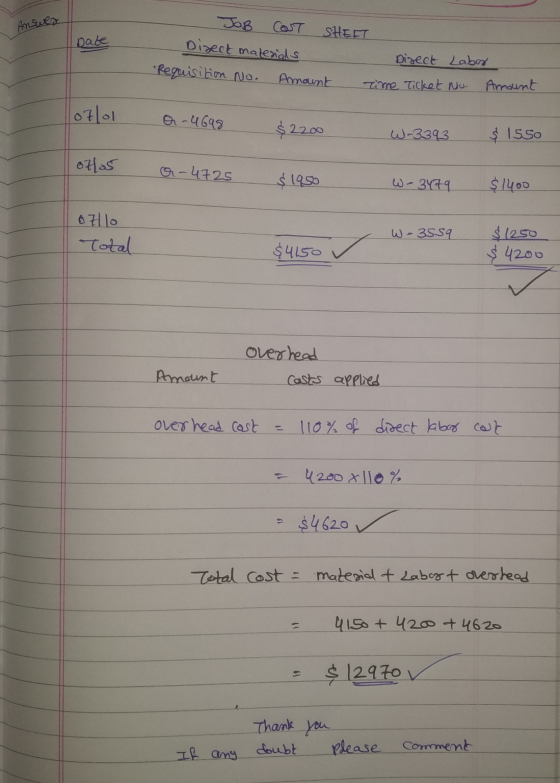 Answer
JOB COST SHEET
Date Direct materials Direct Labor
Requisition No. Amount Time Ticket No Amount
07/01 R-4698 $2200 W-3393 $1550
07/05 R-4725 $1950 W-3479 $1400
07/10 W-3559 $1250
Total $4150 $4200
Overhead
Amount costs applied
overhead cost = 110% of direct labor cost
= 4200 x 110%
= $4620
Total cost = material + Labor + overhead
= 4150 + 4200 + 4620
= $12970
Thank you
If any doubt please comment